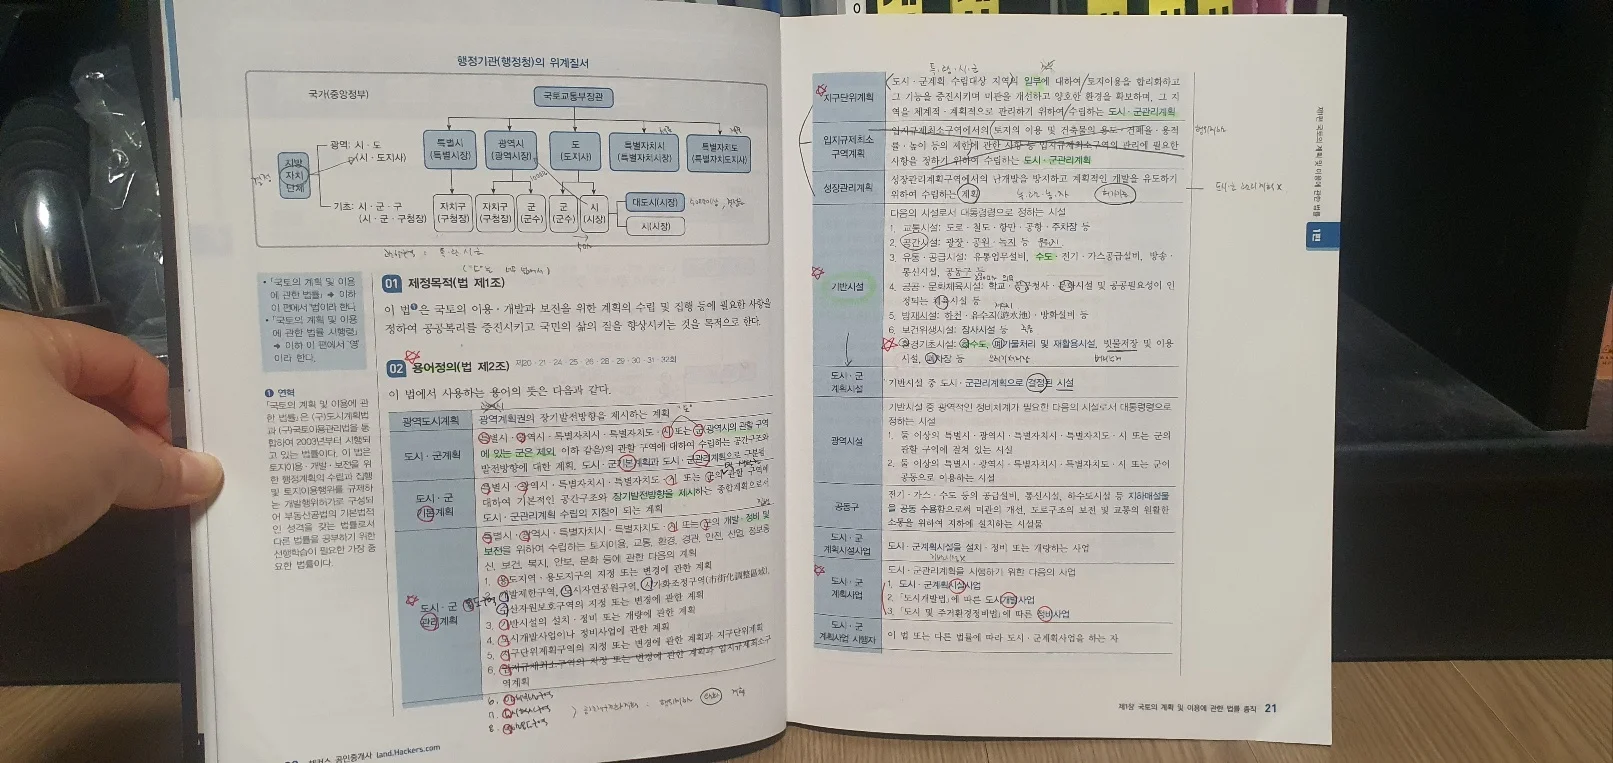 행정기관(행정청)의 위계질서
국가(중앙정부)
국토교통부장관
지방
자치
단체
광역: 시 · 도
(시 · 도지사)
특별시
(특별시장)
광역시
(광역시장)
도
(도지사)
특별자치시
(특별자치시장)
특별자치도
(특별자치도지사)
기초: 시 · 군 · 구
(시 · 군 · 구청장)
자치구
(구청장)
자치구
(구청장)
군
(군수)
군
(군수)
시
(시장)
대도시(시장)
시(시장)
• 「국토의 계획 및 이용
에 관한 법률」 → 이하
이 편에서 '법'이라 한다.
• 「국토의 계획 및 이용
에 관한 법률 시행령」
→ 이하 이 편에서 '영'
이라 한다.
❶ 연혁
「국토의 계획 및 이용에 관
한 법률」은 (구)도시계획법
과 (구)국토이용관리법을 통
합하여 2003년부터 시행되
고 있는 법률이다. 이 법은
토지이용 · 개발 · 보전을 위
한 행정계획의 수립과 집행
및 토지이용행위를 규제하
는 개발행위허가로 구성되
어 부동산공법의 기본법적
인 성격을 갖는 법률로서
다른 법률을 공부하기 위한
선행학습이 필요한 가장 중
요한 법률이다.
01 제정목적(법 제1조)
이 법❶은 국토의 이용 · 개발과 보전을 위한 계획의 수립 및 집행 등에 필요한 사항을
정하여 공공복리를 증진시키고 국민의 삶의 질을 향상시키는 것을 목적으로 한다.
02 용어정의(법 제2조) 제20 · 21 · 24 · 25 · 26 · 28 · 29 · 30 · 31 · 32회
이 법에서 사용하는 용어의 뜻은 다음과 같다.
광역도시계획
광역계획권의 장기발전방향을 제시하는 계획
도시 · 군계획
특별시 · 광역시 · 특별자치시 · 특별자치도 · 시 또는 군(광역시의 관할 구역
에 있는 군은 제외. 이하 같음)의 관할 구역에 대하여 수립하는 공간구조와
발전방향에 대한 계획. 도시 · 군기본계획과 도시 · 군관리계획으로 구분됨
도시 · 군
기본계획
특별시 · 광역시 · 특별자치시 · 특별자치도 · 시 또는 군의 관할 구역에
대하여 기본적인 공간구조와 장기발전방향을 제시하는 종합계획으로서
도시 · 군관리계획 수립의 지침이 되는 계획
도시 · 군
관리계획
특별시 · 광역시 · 특별자치시 · 특별자치도 · 시 또는 군의 개발 · 정비 및
보전을 위하여 수립하는 토지이용, 교통, 환경, 경관, 안전, 산업, 정보통
신, 보건, 복지, 안보, 문화 등에 관한 다음의 계획
1. 용도지역 · 용도지구의 지정 또는 변경에 관한 계획
2. 개발제한구역, 도시자연공원구역, 시가화조정구역(市街化調整區域),
수산자원보호구역의 지정 또는 변경에 관한 계획
3. 기반시설의 설치 · 정비 또는 개량에 관한 계획
4. 도시개발사업이나 정비사업에 관한 계획
5. 지구단위계획구역의 지정 또는 변경에 관한 계획과 지구단위계획
6. 입지규제최소구역의 지정 또는 변경에 관한 계획과 입지규제최소구
역계획
해커스 공인중개사 land.Hackers.com
지구단위계획
도시 · 군계획 수립대상 지역의 일부에 대하여 토지이용을 합리화하고
그 기능을 증진시키며 미관을 개선하고 양호한 환경을 확보하며, 그 지
역을 체계적 · 계획적으로 관리하기 위하여 수립하는 도시 · 군관리계획
입지규제최소
구역계획
입지규제최소구역에서의 토지의 이용 및 건축물의 용도 · 건폐율 · 용적
률 · 높이 등의 제한에 관한 사항 등 입지규제최소구역의 관리에 필요한
사항을 정하기 위하여 수립하는 도시 · 군관리계획
성장관리계획
성장관리계획구역에서의 난개발을 방지하고 계획적인 개발을 유도하기
위하여 수립하는 계획
기반시설
다음의 시설로서 대통령령으로 정하는 시설
1. 교통시설: 도로 · 철도 · 항만 · 공항 · 주차장 등
2. 공간시설: 광장 · 공원 · 녹지 등
3. 유통 · 공급시설: 유통업무설비, 수도 · 전기 · 가스공급설비, 방송 ·
통신시설, 공동구 등
4. 공공 · 문화체육시설: 학교 · 공공청사 · 문화시설 및 공공필요성이 인
정되는 체육시설 등
5. 방재시설: 하천 · 유수지(遊水池) · 방화설비 등
6. 보건위생시설: 장사시설 등
7. 환경기초시설: 하수도, 폐기물처리 및 재활용시설, 빗물저장 및 이용
시설, 폐차장 등
도시 · 군
계획시설
기반시설 중 도시 · 군관리계획으로 결정된 시설
광역시설
기반시설 중 광역적인 정비체계가 필요한 다음의 시설로서 대통령령으로
정하는 시설
1. 둘 이상의 특별시 · 광역시 · 특별자치시 · 특별자치도 · 시 또는 군의
관할 구역에 걸쳐 있는 시설
2. 둘 이상의 특별시 · 광역시 · 특별자치시 · 특별자치도 · 시 또는 군이
공동으로 이용하는 시설
공동구
전기 · 가스 · 수도 등의 공급설비, 통신시설, 하수도시설 등 지하매설물
을 공동 수용함으로써 미관의 개선, 도로구조의 보전 및 교통의 원활한
소통을 위하여 지하에 설치하는 시설물
도시 · 군
계획시설사업
도시 · 군계획시설을 설치 · 정비 또는 개량하는 사업
도시 · 군
계획사업
도시 · 군관리계획을 시행하기 위한 다음의 사업
1. 도시 · 군계획시설사업
2. 「도시개발법」에 따른 도시개발사업
3. 「도시 및 주거환경정비법」에 따른 정비사업
도시 · 군
계획사업 시행자
이 법 또는 다른 법률에 따라 도시 · 군계획사업을 하는 자
제1편 국토의 계획 및 이용에 관한 법률
1편
제1장 국토의 계획 및 이용에 관한 법률 총칙 21